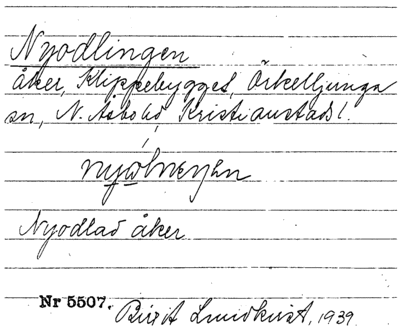 Nyodlingen
åker, Klippebygget, Örkelljunga
sn, N. Åsbo hd, Kristianstads l.
Nyodlad åker
Nr 5507. Birgit Lundkvist, 1939